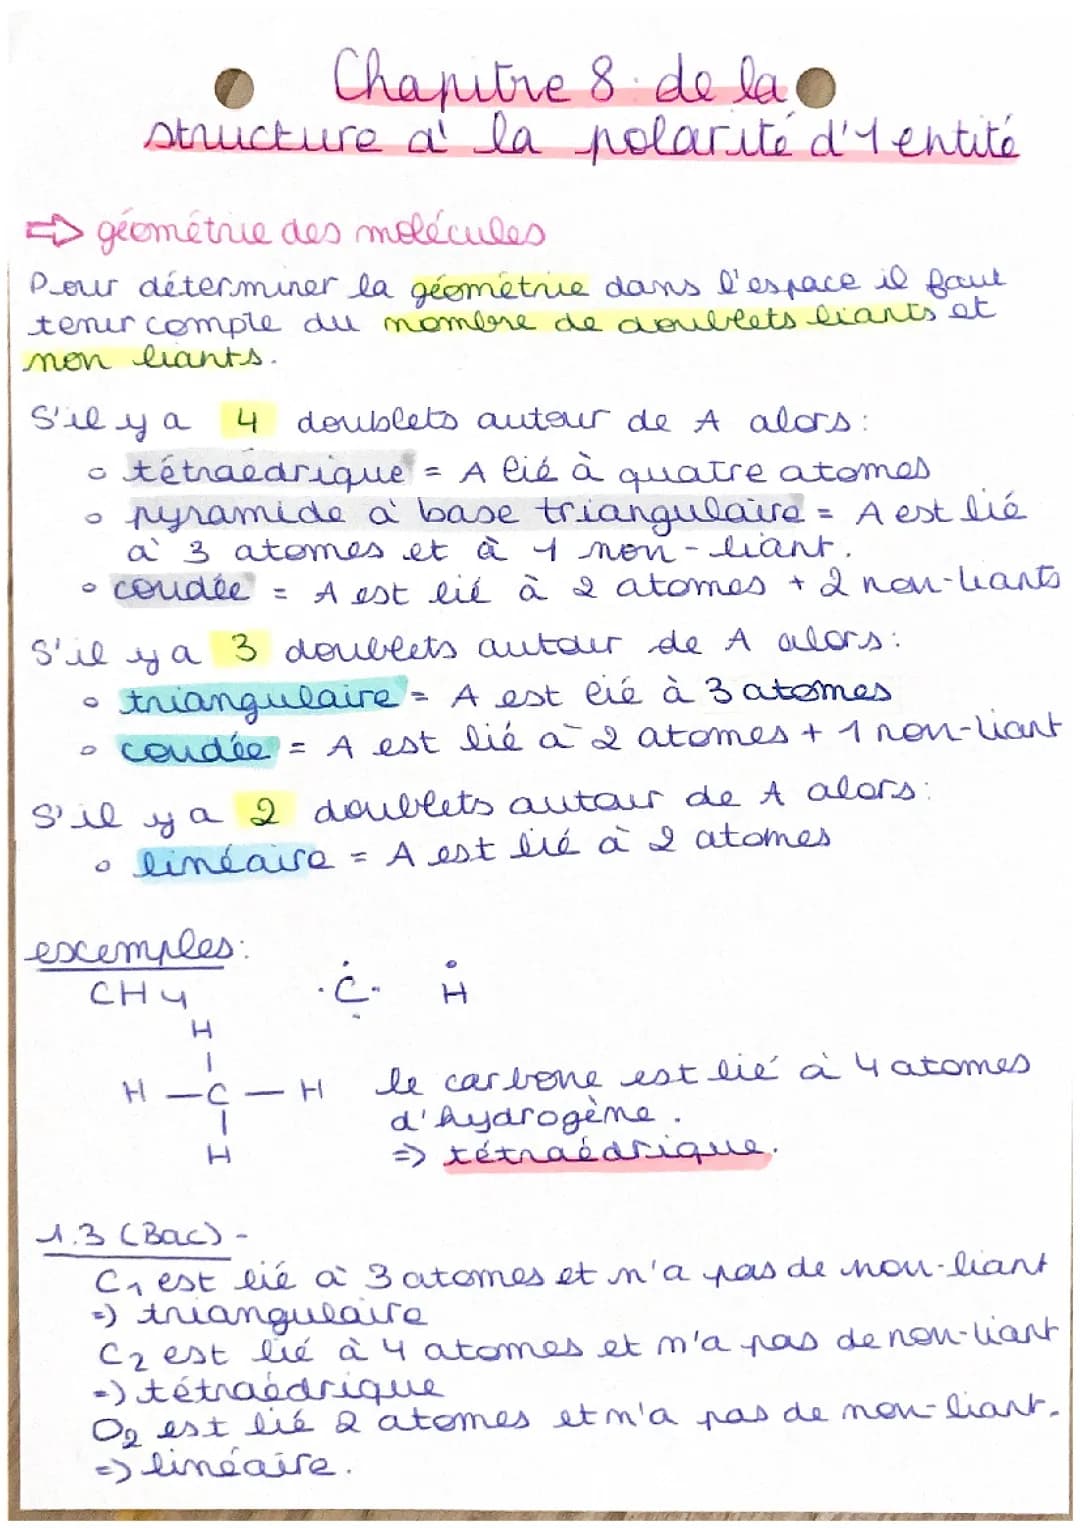 Chapitre 8: de la
structure à la polarité d'1 entité
⇒ géométrie des molécules
Pour déterminer la géométrie dans l'espace il faut
tenir compte du nombre de doublets liants et
non liants.
S'il y a 4 doublets autour de A alors:
o tétraédrique = A lié à quatre atomes
o pyramide à base triangulaire = A est lié
à 3 atomes et à 1 non-liant.
o coudée = A est lié à 2 atomes + 2 non-liants
S'il y a 3 doublets autour de A alors:
o triangulaire = A est lié à 3 atomes
o coudée = A est lié à 2 atomes + 1 non-liant
S'il y a 2 doublets autour de A alors:
o linéaire = A est lié à 2 atomes
exemples:
CH4 ·C· H
H
H — C — H le carbone est lié à 4 atomes
d'hydrogène.
H ⇒ tétraédrique.
1.3 (Bac) -
C1 est lié à 3 atomes et n'a pas de non-liant
=) triangulaire
C2 est lié à 4 atomes et n'a pas de non-liant
=) tétraédrique
O2 est lié 2 atomes et n'a pas de non-liant.
=) linéaire.